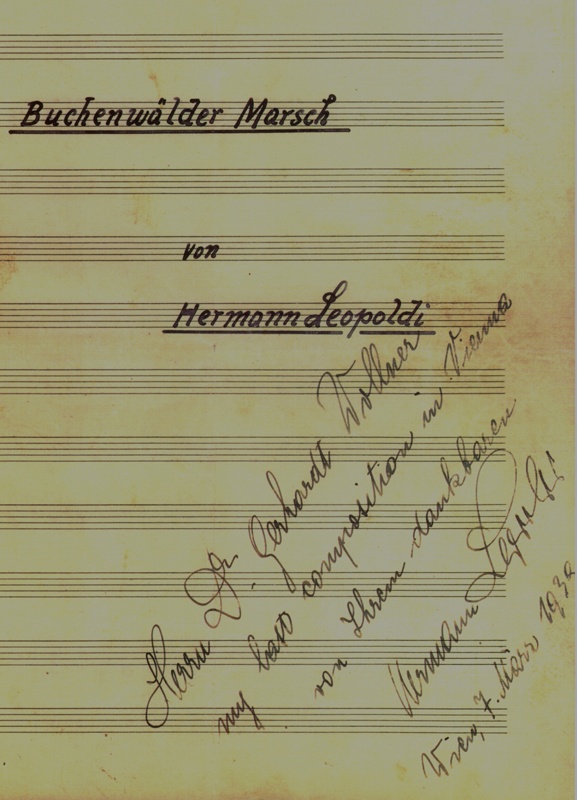 Buchenwälder Marsch
von
Hermann Leopoldi
Herrn Dr. Gerhardt Wollner
my last composition in Vienna
von Ihrem dankbaren
Hermann Leopoldi
Wien, 7. März 1939